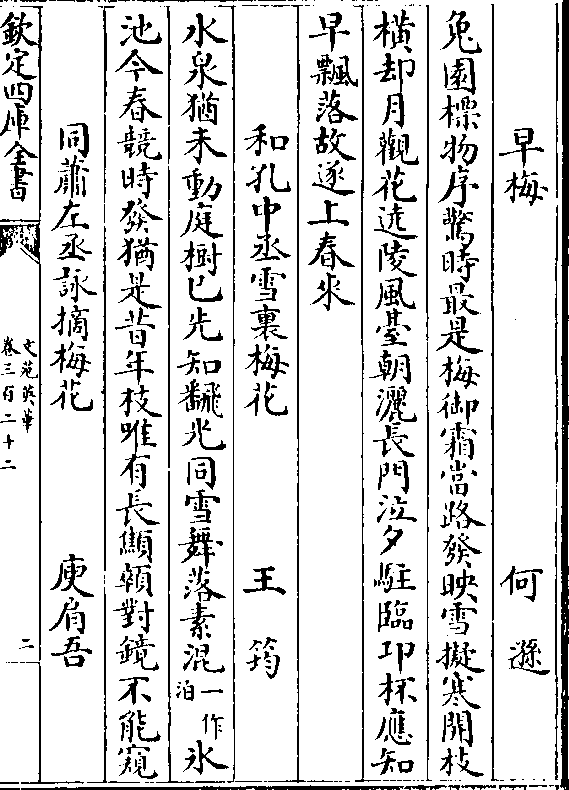 早梅 何遜
兔園標物序驚時最是梅御霜當路發映雪擬寒開枝
橫却月觀花遶陵風臺朝灑長門泣夕駐臨邛杯應知
早飄落故逐上春來
和孔中丞雪裏梅花 王筠
水泉猶未動庭樹已先知翻光同雪舞落素混一作泊氷
池今春競時發猶是昔年枝唯有長顦顇對鏡不能窺
同蕭左丞詠摘梅花 庾肩吾
欽定四庫全書
文苑英華
卷三百二十二
二